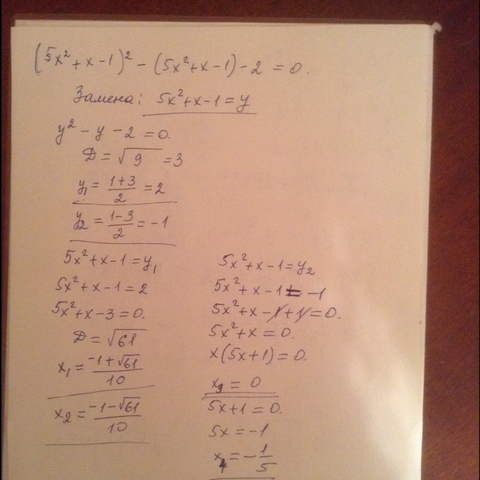 (5x²+x-1)² - (5x²+x-1) - 2 = 0.
Замена: 5x²+x-1=y
y² - y - 2 = 0.
D = √9 = 3
y₁ = (1+3)/2 = 2
y₂ = (1-3)/2 = -1
5x²+x-1=y₁
5x²+x-1=2
5x²+x-3=0.
D = √61
x₁ = (-1+√61)/10
x₂ = (-1-√61)/10
5x²+x-1=y₂
5x²+x-1=-1
5x²+x-1+1=0.
5x²+x=0.
x(5x+1)=0.
x₃ = 0
5x+1=0.
5x=-1
x₄ = -1/5